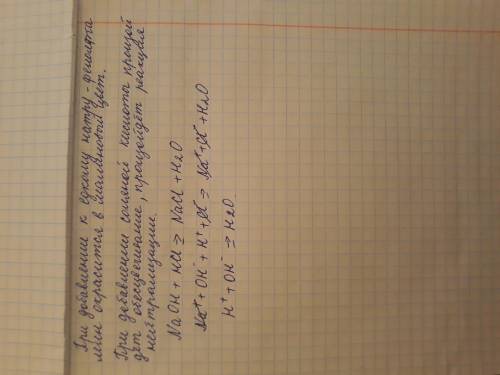 При добавлении к едкому натру - фенолфта
леин окрасится в малиновый цвет.
При добавлении соляной кислоты произой
дёт обесцвечивание, произойдёт реакция
нейтрализации.
NaOH + HCl = NaCl + H2O
Na⁺ + OH⁻ + H⁺ + Cl⁻ = Na⁺ + Cl⁻ + H2O
H⁺ + OH⁻ = H2O